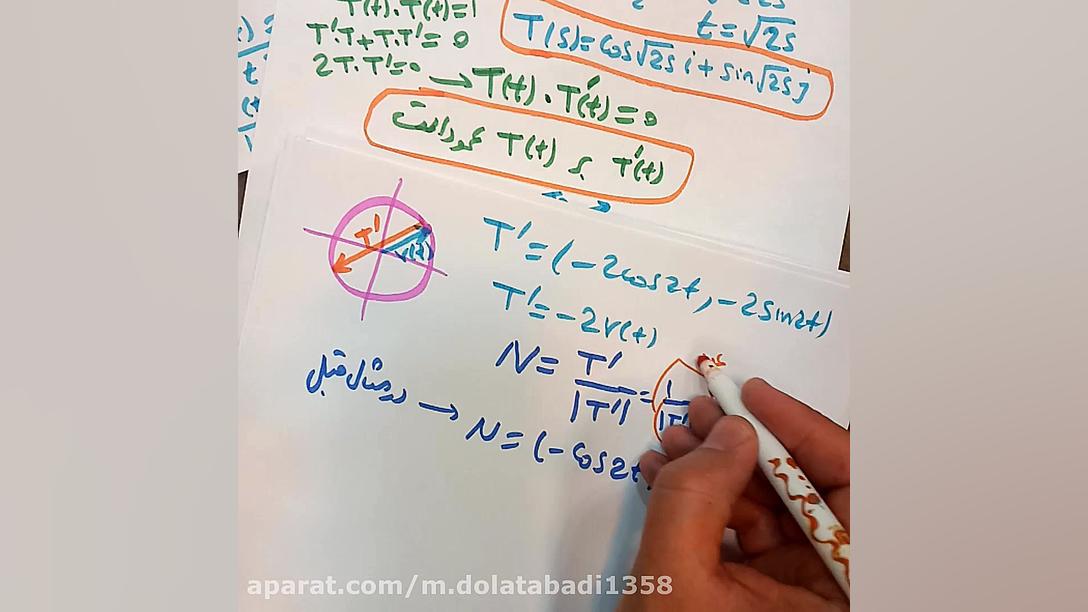 T(t).T(t)=1
T'T+T.T'=0
2T.T'=0 → T(t).T'(t)=0
t=√2s
T(s)=cos√2s i+sin√2s j
T'(t) بر T(t) عموداست
T'
r(t)
T'=(-2cos2t,-2sin2t)
T'=-2r(t)
N=T'/|T'|=1/|T'|
درمثال قبل → N=(-cos2t
aparat.com/m.dolatabadi1358